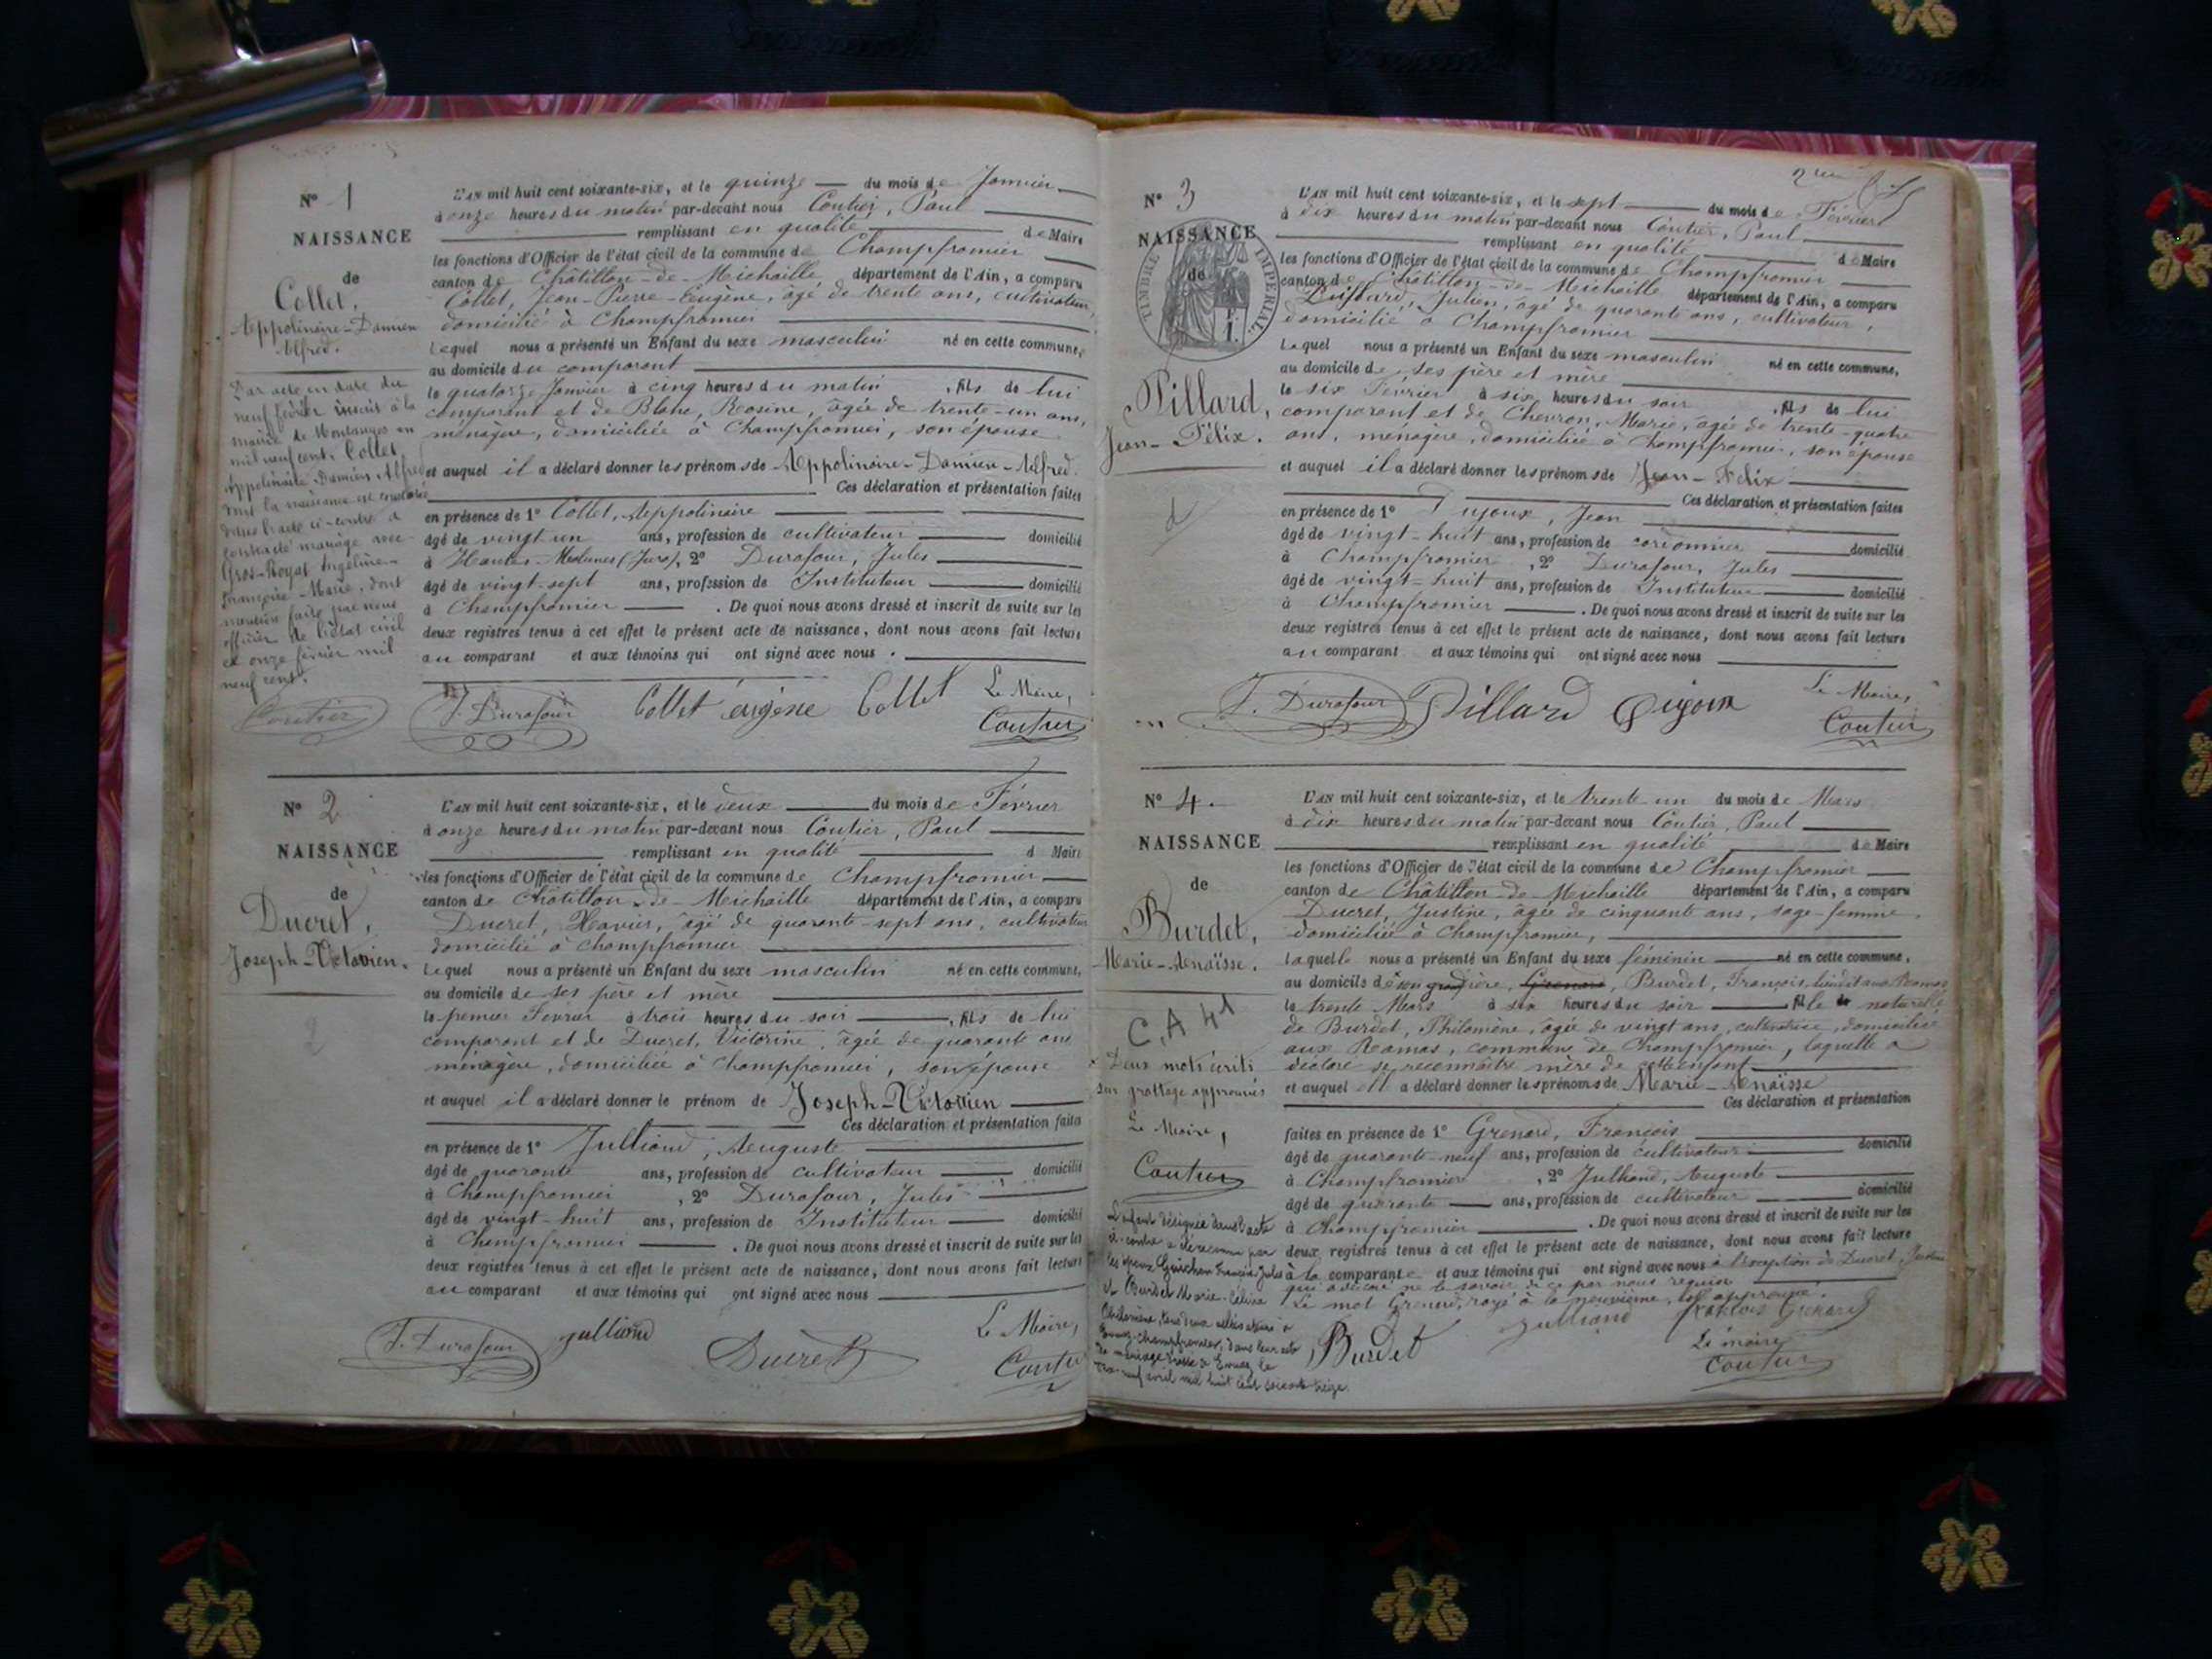 N° 1
NAISSANCE
de
Collet,
Appolinaire-Damien
Alfred.
Par acte en date du
neuf février inscrit à la
mairie de Montanges en
mil neuf cent, Collet
Appolinaire Damien Alfred
dont la naissance est constatée
dans l'acte ci-contre a
contracté mariage avec
Gros-Royat Angéline-
Françoise-Marie, dont
mention faite par nous
officier de l'état civil
ce onze février mil
neuf cent.
Coutier
L'AN mil huit cent soixante-six, et le quinze du mois de Janvier
à onze heures du matin par-devant nous Coutier, Paul
remplissant en qualité de Maire
les fonctions d'Officier de l'état civil de la commune de Champfromier
canton de Châtillon-de-Michaille département de l'Ain, a comparu
Collet, Jean-Pierre-Eugène, âgé de trente ans, cultivateur,
domicilié à Champfromier
Lequel nous a présenté un Enfant du sexe masculin né en cette commune,
au domicile du comparant
le quatorze Janvier à cinq heures du matin, fils de lui
comparant et de Blanc, Rosine, âgée de trente-un ans,
ménagère, domiciliée à Champfromier, son épouse
et auquel il a déclaré donner les prénoms de Appolinaire-Damien-Alfred.
Ces déclaration et présentation faites
en présence de 1° Collet, Appolinaire
âgé de vingt un ans, profession de cultivateur domicilié
à Hautes-Molunes (Jura), 2° Durafour, Jules
âgé de vingt-sept ans, profession de Instituteur domicilié
à Champfromier. De quoi nous avons dressé et inscrit de suite sur les
deux registres tenus à cet effet le présent acte de naissance, dont nous avons fait lecture
au comparant et aux témoins qui ont signé avec nous.
J. Durafour Collet eugène Collet Le Maire,
Coutier
N° 2
NAISSANCE
de
Ducret,
Joseph-Victorien.
2
L'AN mil huit cent soixante-six, et le deux du mois de Février
à onze heures du matin par-devant nous Coutier, Paul
remplissant en qualité d Maire
les fonctions d'Officier de l'état civil de la commune de Champfromier
canton de Châtillon-de-Michaille département de l'Ain, a comparu
Ducret, Xavier, âgé de quarante-sept ans, cultivateur
domicilié à Champfromier
Lequel nous a présenté un Enfant du sexe masculin né en cette commune,
au domicile de ses père et mère
le premier Février à trois heures du soir, fils de lui
comparant et de Ducret, Victorine, âgée de quarante ans
ménagère, domiciliée à Champfromier, son épouse
et auquel il a déclaré donner le prénom de Joseph-Victorien
Ces déclaration et présentation faites
en présence de 1° Julliand, Auguste
âgé de quarante ans, profession de cultivateur domicilié
à Champfromier, 2° Durafour, Jules
âgé de vingt-huit ans, profession de Instituteur domicilié
à Champfromier. De quoi nous avons dressé et inscrit de suite sur les
deux registres tenus à cet effet le présent acte de naissance, dont nous avons fait lecture
au comparant et aux témoins qui ont signé avec nous
J. Durafour julliand Ducret Le Maire,
Coutier
N° 3
NAISSANCE
de
TIMBRE IMPÉRIAL.
Pillard,
Jean-Félix.
L'AN mil huit cent soixante-six, et le sept du mois de Février
à dix heures du matin par-devant nous Coutier, Paul
remplissant en qualité de Maire
les fonctions d'Officier de l'état civil de la commune de Champfromier
canton de Châtillon-de-Michaille département de l'Ain, a comparu
Pillard, Julien, âgé de quarante ans, cultivateur,
domicilié à Champfromier
Lequel nous a présenté un Enfant du sexe masculin né en cette commune,
au domicile de ses père et mère
le six Février à six heures du soir, fils de lui
comparant et de Chevron, Marie, âgée de trente-quatre
ans, ménagère, domiciliée à Champfromier, son épouse
et auquel il a déclaré donner les prénoms de Jean-Félix
Ces déclaration et présentation faites
en présence de 1° Jean
âgé de vingt-huit ans, profession de cordonnier domicilié
à Champfromier, 2° Durafour, Jules
âgé de vingt-huit ans, profession de Instituteur domicilié
à Champfromier. De quoi nous avons dressé et inscrit de suite sur les
deux registres tenus à cet effet le présent acte de naissance, dont nous avons fait lecture
au comparant et aux témoins qui ont signé avec nous
J. Durafour Pillard Le Maire,
Coutier
N° 4.
NAISSANCE
de
Burdet,
Marie-Anaïsse.
C.A 41
Deux mots écrits
sur grattage approuvés
Le Maire,
Coutier
L'enfant désignée dans l'acte
ci-contre a été reconnue par
les époux Guichon François-Jules
et Burdet Marie-Céline
Philomène, tous deux cultivateurs à
Champfromier, dans leur acte
de mariage dressé à le
neuf avril mil huit cent soixante-treize.
L'AN mil huit cent soixante-six, et le trente-un du mois de Mars
à dix heures du matin par-devant nous Coutier, Paul
remplissant en qualité de Maire
les fonctions d'Officier de l'état civil de la commune de Champfromier
canton de Châtillon-de-Michaille département de l'Ain, a comparu
Ducret, Justine, âgée de cinquante ans, sage-femme,
domiciliée à Champfromier,
Laquelle nous a présenté un Enfant du sexe féminin né en cette commune,
au domicile de son grand père, Grenard, Burdet, François, lieudit aux Ramas
le trente Mars à six heures du soir, fille naturelle
de Burdet, Philomène, âgée de vingt ans, cultivatrice, domiciliée
aux Ramas, commune de Champfromier, laquelle a
déclaré se reconnaître mère de cette enfant
et auquel elle a déclaré donner les prénoms de Marie-Anaïsse
Ces déclaration et présentation
faites en présence de 1° Grenard, François
âgé de quarante-neuf ans, profession de cultivateur domicilié
à Champfromier, 2° Julliand, Auguste
âgé de quarante ans, profession de cultivateur domicilié
à Champfromier. De quoi nous avons dressé et inscrit de suite sur les
deux registres tenus à cet effet le présent acte de naissance, dont nous avons fait lecture
à la comparante et aux témoins qui ont signé avec nous à l'exception de Ducret, Justine
qui a déclaré ne le savoir de ce par nous requise
Le mot Grenard, rayé à la neuvième, est approuvé.
Burdet julliand françois Grenard
Le maire
Coutier